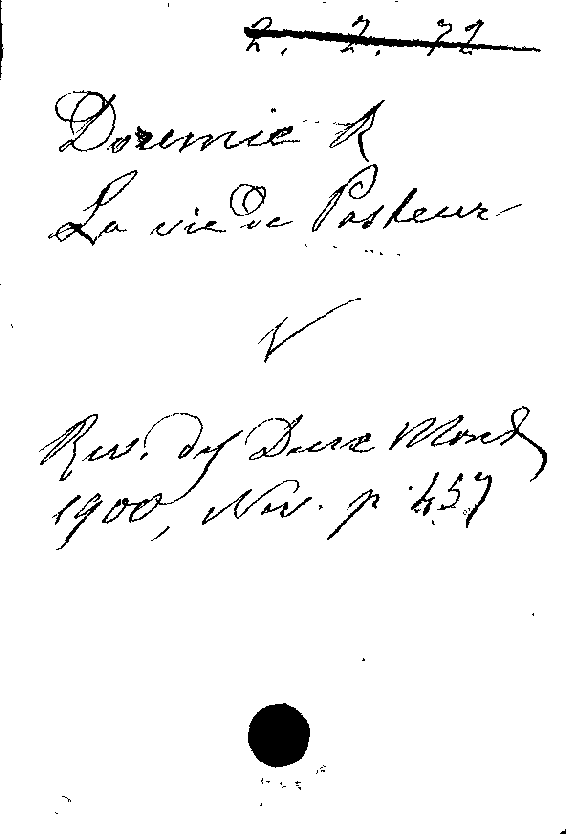 2. 2. 72
Doremie R
La vie de Pasteur
V
Rev. des Deux Mond
1900, Nov. p 457